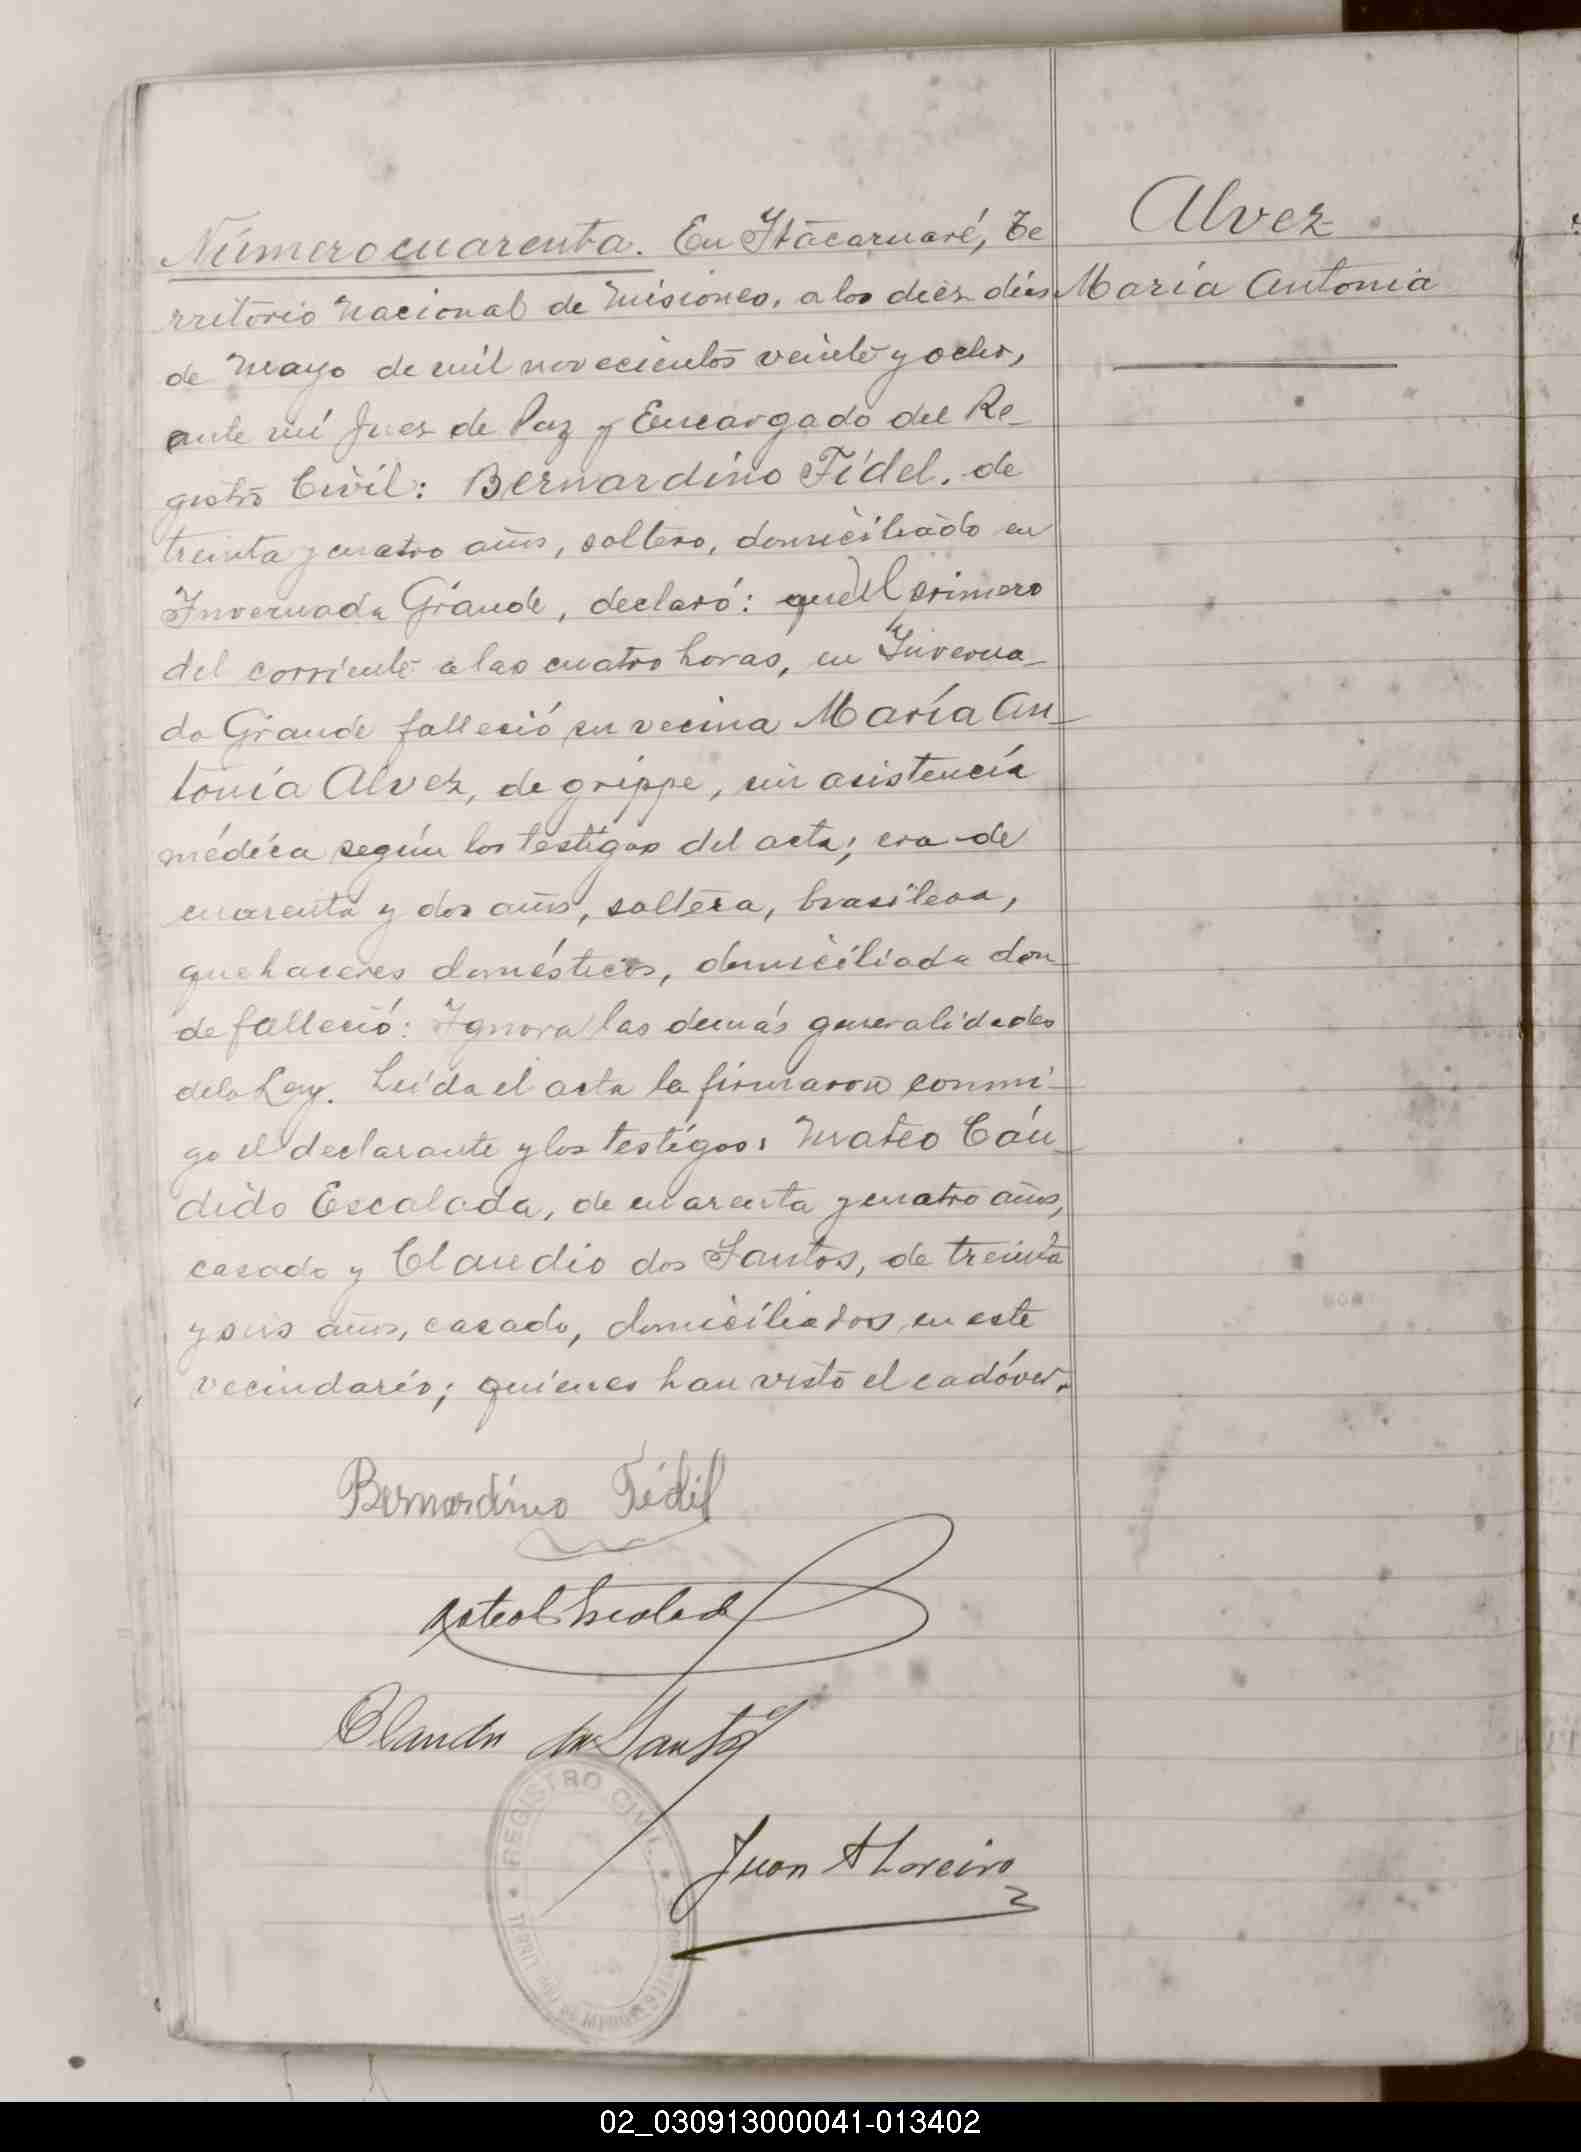 Alvez
María Antonia
Número cuarenta. En Itacaruaré, Te
rritorio Nacional de Misiones, a los diez días
de Mayo de mil novecientos veinte y ocho,
ante mí Juez de Paz y Encargado del Re-
gistro Civil: Bernardino Fidel, de
treinta y cuatro años, soltero, domiciliado en
Invernada Grande, declaró: que el primero
del corriente a las cuatro horas, en Inverna-
da Grande falleció su vecina María An-
tonia Alvez, de grippe, sin asistencia
médica según los testigos del acta; era de
cuarenta y dos años, soltera, brasilera,
quehaceres domésticos, domiciliada don-
de falleció: Ignora las demás generalidades
de la Ley. Leída el acta la firmaron conmi-
go el declarante y los testigos: Mateo Cán-
dido Escalada, de cuarenta y cuatro años,
casado y Claudio dos Santos, de treinta
y seis años, casado, domiciliados en este
vecindario; quienes han visto el cadáver.
Bernardino Fidel
Claudio dos Santos
REGISTRO CIVIL
Juan A Loreiro
02_030913000041-013402